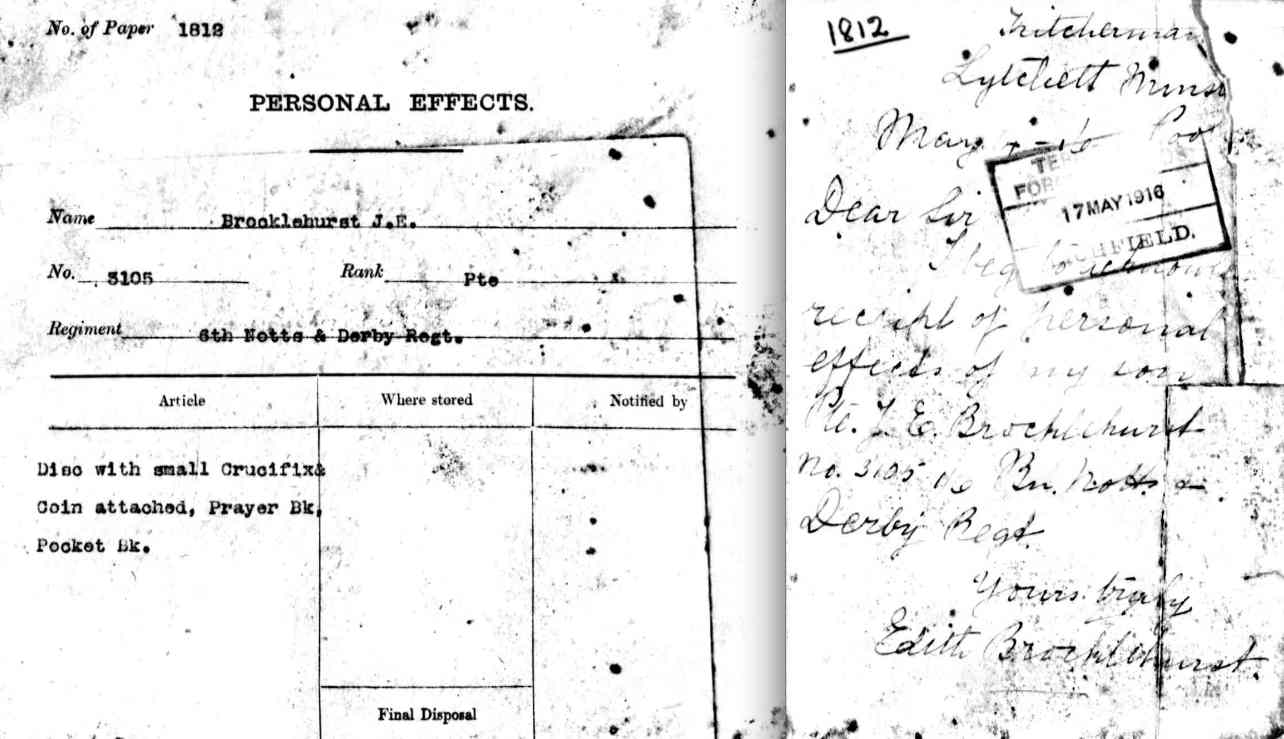 No. of Paper 1812
PERSONAL EFFECTS.
Name Brocklehurst J.E.
No. 3105 Rank Pte
Regiment 6th Notts & Derby Regt.
Article Where stored Notified by
Disc with small Crucifix&
Coin attached, Prayer Bk,
Pocket Bk.
Final Disposal
1812
Lytchett Mins
May Poo
17 MAY 1916
FIELD.
Dear Sir
I beg to
receipt of personal
effects of my son
Pte. J. E. Brocklehurst
No. 3105 1/6 Bn. Notts &
Derby Regt
Yours truly
Edith Brocklehurst